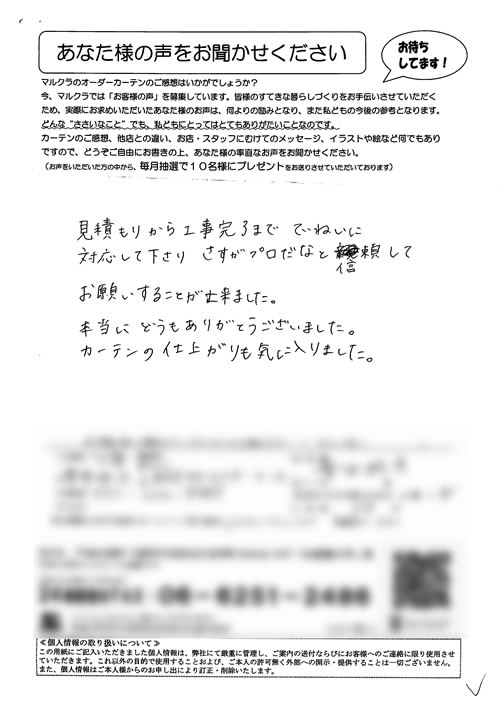 あなた様の声をお聞かせください
お待ち
してます！
マルクラのオーダーカーテンのご感想はいかがでしょうか？
今、マルクラでは「お客様の声」を募集しています。皆様のすてきな暮らしづくりをお手伝いさせていただく
ため、実際にお求めいただいたあなた様のお声は、何よりの励みとなり、また私どもの今後の参考となります。
どんな“ささいなこと”でも、私どもにとってはとてもありがたいことなのです。
カーテンのご感想、他店との違い、お店・スタッフにむけてのメッセージ、イラストや絵など何でもあり
ですので、どうぞご自由にお書きの上、あなた様の率直なお声をお聞かせください。
（お声をいただいた方の中から、毎月抽選で１０名様にプレゼントをお送りさせていただいております）
見積もりから工事完了まで ていねいに
対応して下さり さすがプロだなと 信頼して
お願いすることが出来ました。
本当に どうもありがとうございました。
カーテンの仕上がりも気に入りました。
06-6251-2486
≪個人情報の取り扱いについて≫
この用紙にご記入いただきました個人情報は、弊社にて厳重に管理し、ご案内の送付ならびにお客様へのご連絡に限り使用させ
ていただきます。これ以外の目的で使用することおよび、ご本人の許可無く外部への開示・提供することは一切ございません。
また、個人情報はご本人様からのお申し出により訂正・削除いたします。